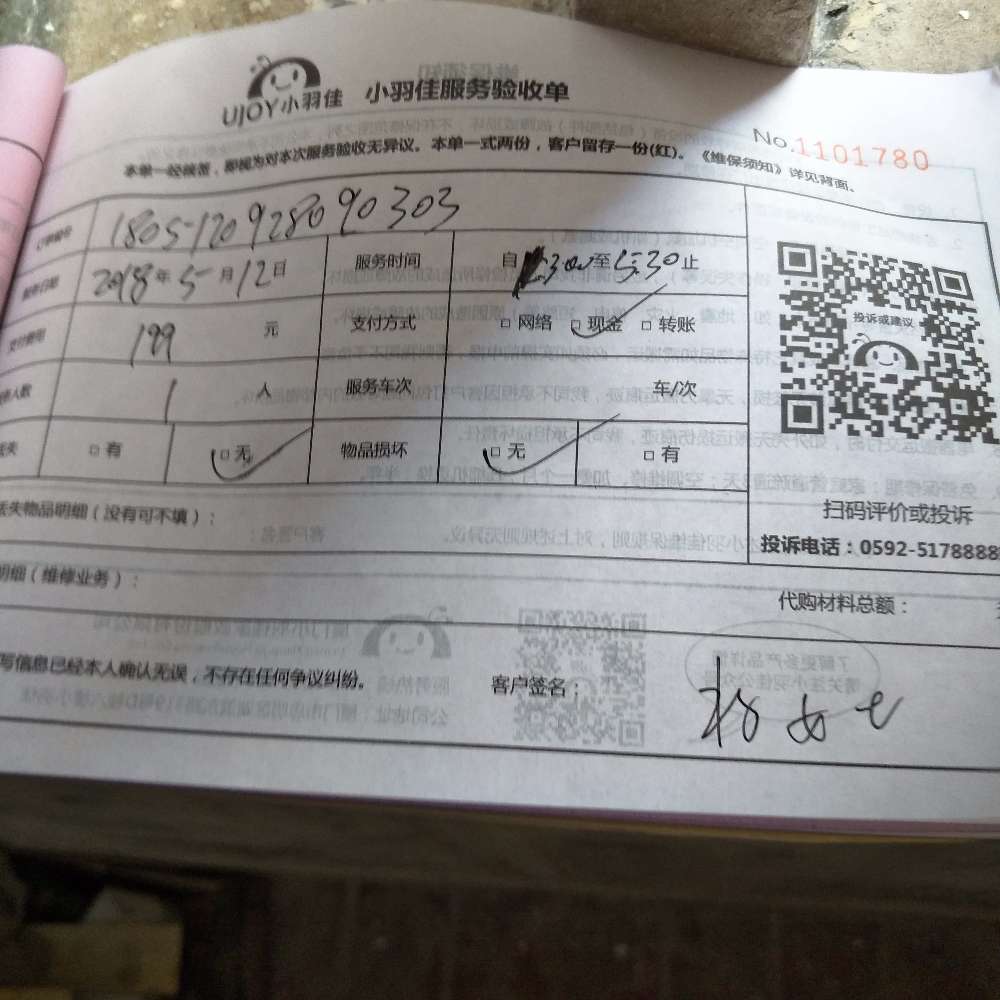 UJOY小羽佳 小羽佳服务验收单
No.1101780
本单一经核签，即视为对本次服务验收无异议。本单一式两份，客户留存一份(红)。《维保须知》详见背面。
订单编号 180512092809 0303
服务日期 2018年5月12日 服务时间 自 3:00至5:30止
支付费用 199 元 支付方式 □网络 □现金 □转账
人数 1 人 服务车次 车/次
失 □有 □无 物品损坏 □无 □有
投诉或建议
扫码评价或投诉
投诉电话：0592-5178888
丢失物品明细（没有可不填）：
明细（维修业务）：
代购材料总额：
写信息已经本人确认无误，不存在任何争议纠纷。 客户签名： 杨女士